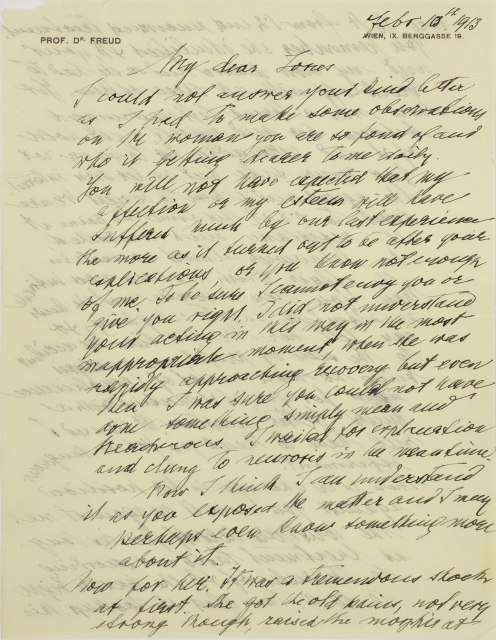 Febr 10th 1913
PROF. DR FREUD
WIEN, IX. BERGGASSE 19
My dear Jones
I could not answer your kind letter
as I had to make some observations
on the woman you are so fond of and
who is getting dearer to me daily.
You will not have expected that my
affection or my esteem will have
suffered much by our last experience
the more as it turned out to be after your
explications, or you know not enough
of me. To be sure I cannot envy you or
give you right, I did not understand
your acting in this way in the most
inappropriate moment, when she was
rapidly approaching recovery but even
then I was sure you could not have
done something simply mean and
treacherous. I waited for explanation
and clung to neurosis in the meantime
Now I think I can understand
it as you exposed the matter and I may
perhaps even know something more
about it.
Now for her. It was a tremendous shock
at first. She got the old pains, not very
strong though, raised the morphia at